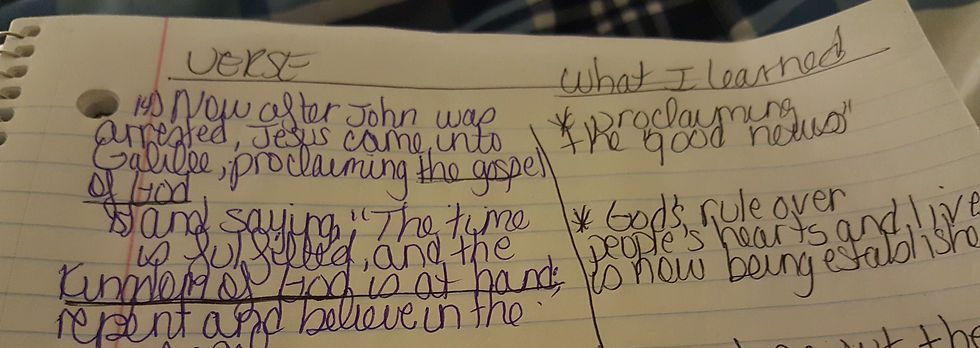 VERSE
14) Now after John was
arrested, Jesus came into
Galilee, proclaiming the gospel
of God
15) and saying, "The time
is fulfilled, and the
Kingdom of God is at hand;
repent and believe in the
What I learned
* proclaiming
the good news"
* God's rule over
people's hearts and live
is now being establishe